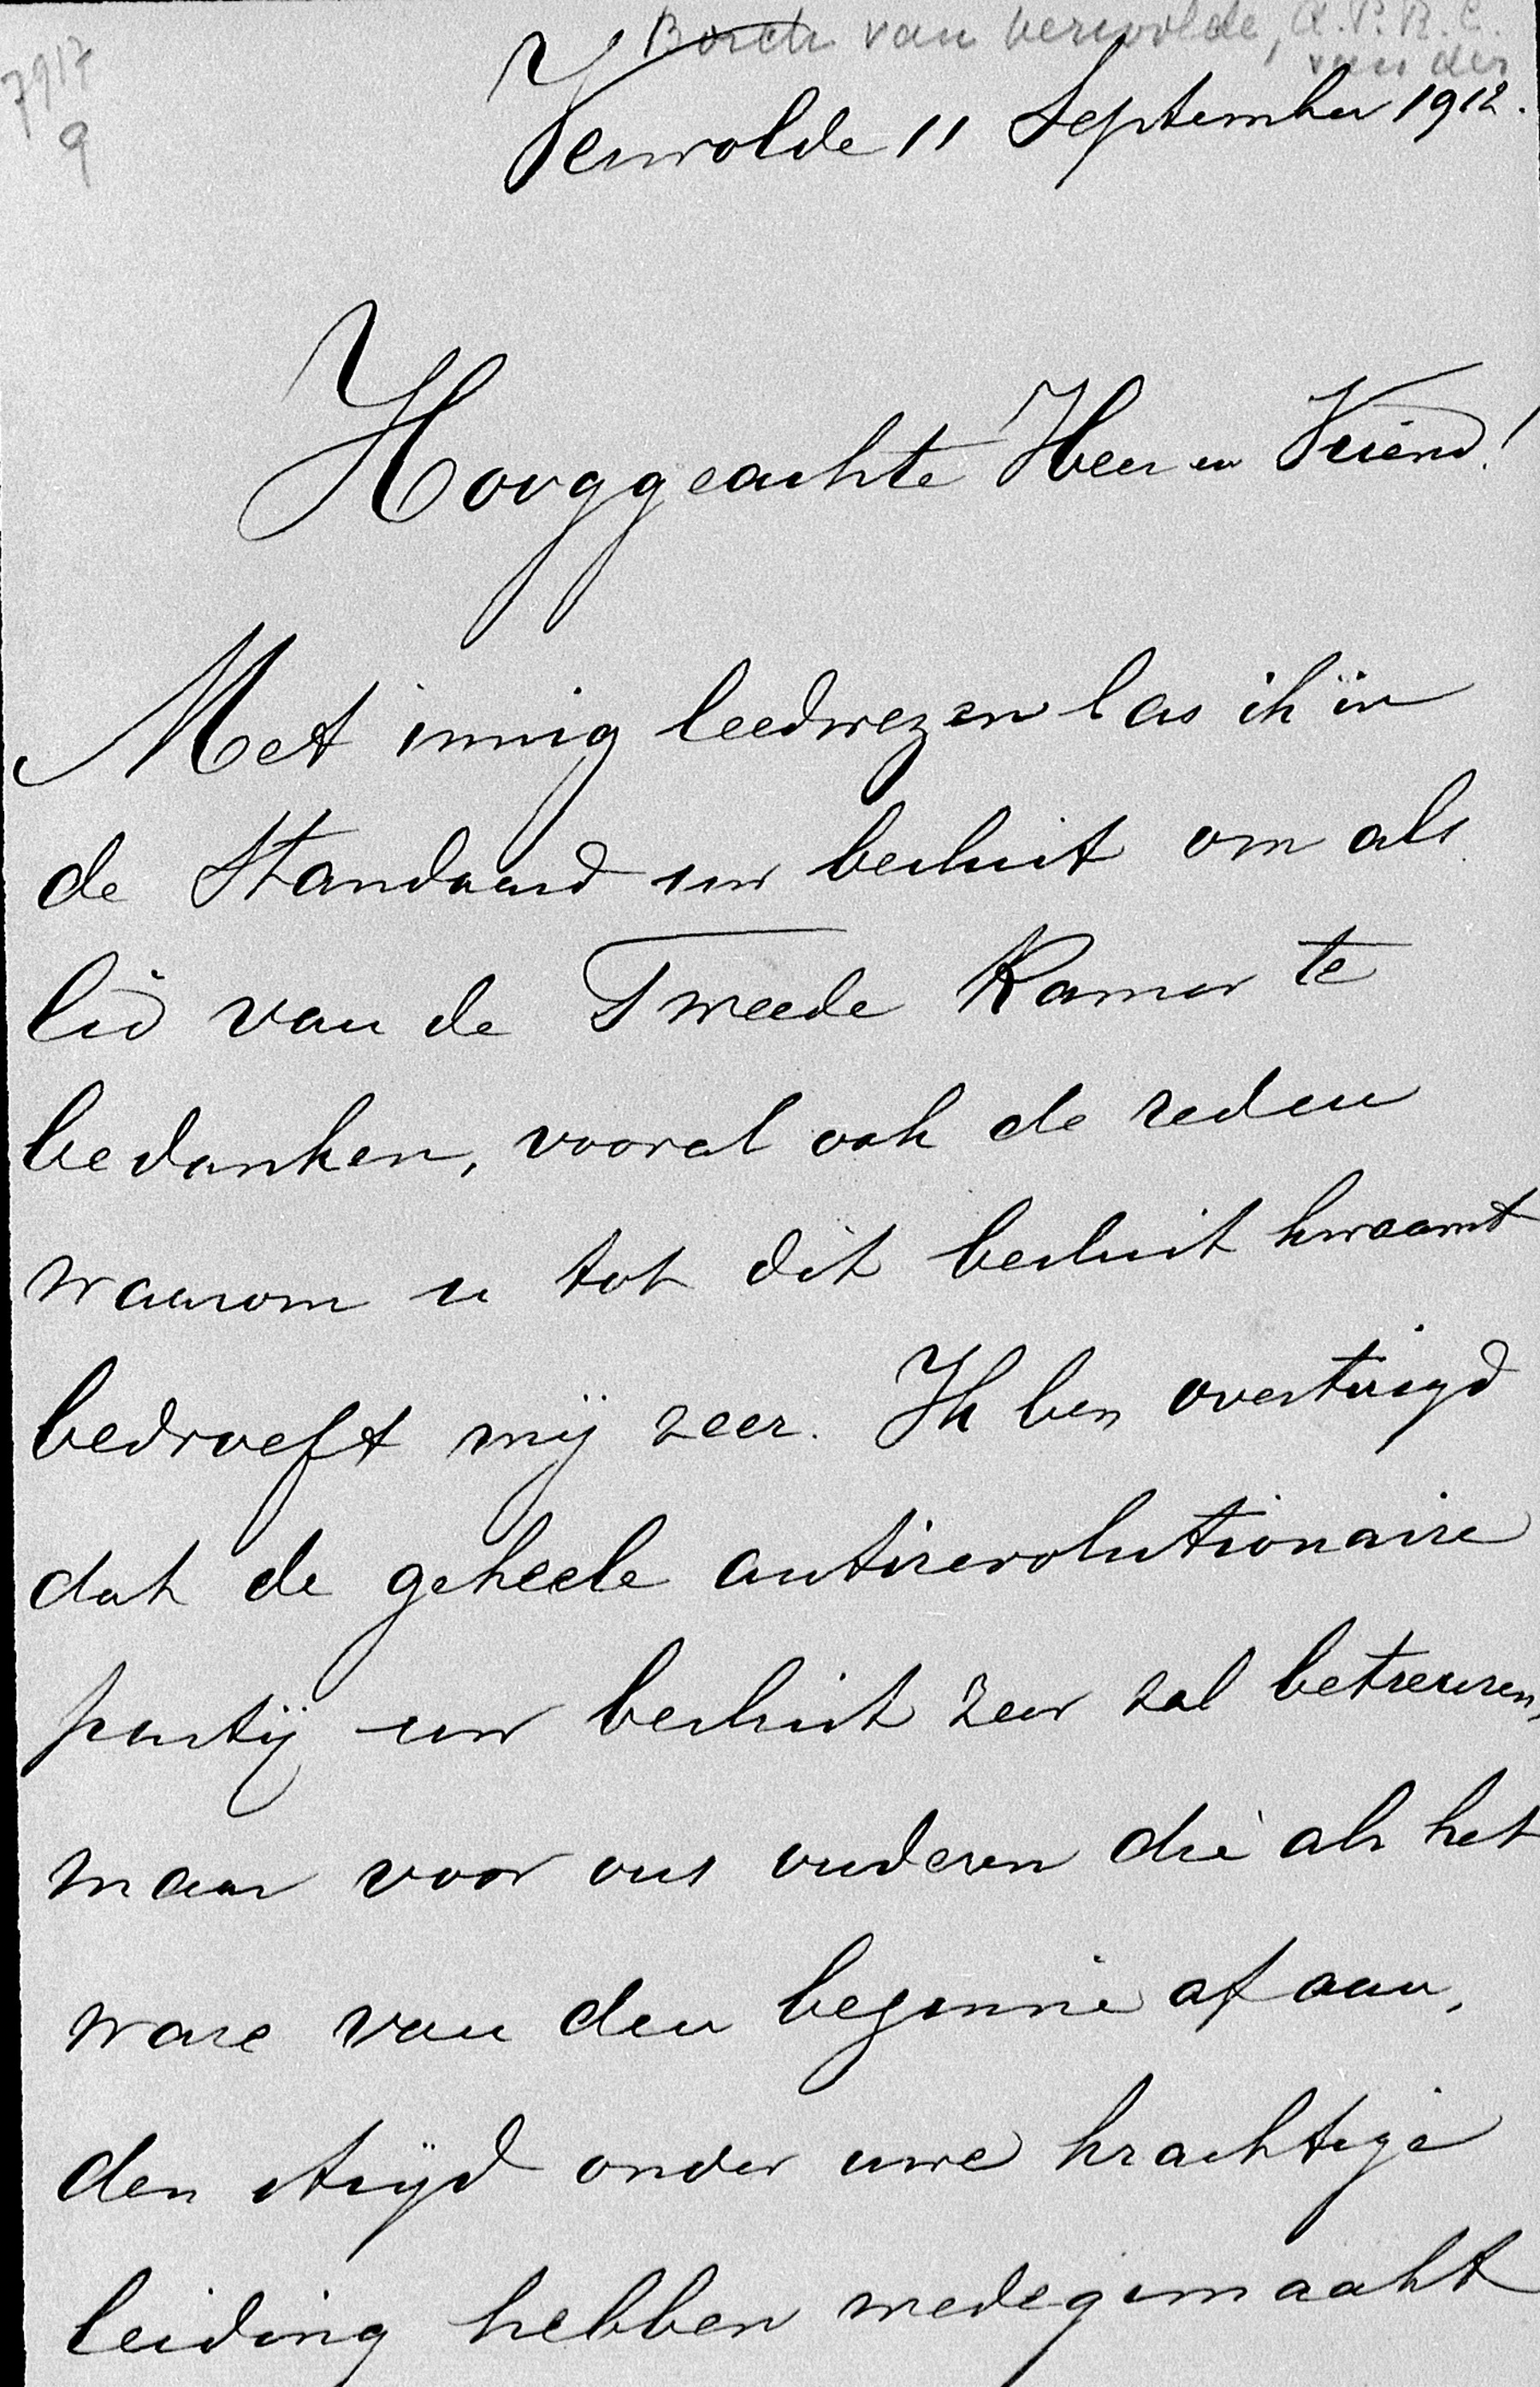 Borch van Verwolde, A.P.R.C.
van der
7917
9
Verwolde 11 September 1912.
Hooggeachte Heer en Vriend!
Met innig leedwezen las ik in
de Standaard uw besluit om als
lid van de Tweede Kamer te
bedanken, vooral ook de reden
waarom u tot dit besluit kwaamt
bedroeft mij zeer. Ik ben overtuigd
dat de geheele antirevolutionaire
partij uw besluit zeer zal betreuren,
maar voor ons ouderen die als het
ware van den beginne af aan,
den strijd onder uwe krachtige
leiding hebben medegemaakt